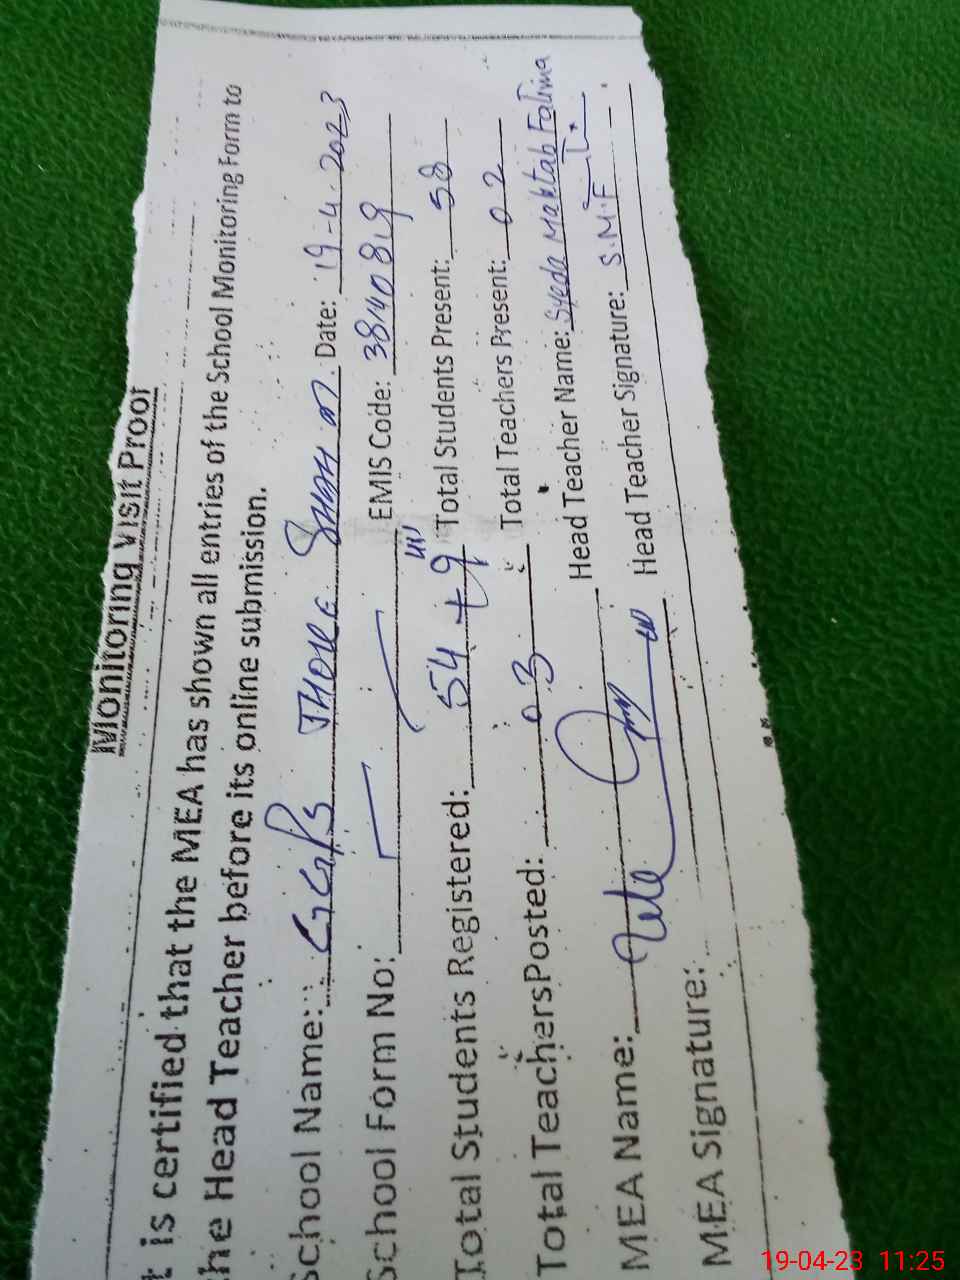 Monitoring Visit Proof
t is certified that the MEA has shown all entries of the School Monitoring Form to
he Head Teacher before its online submission.
School Name: GGPS Date: 19-4-2023
School Form No: EMIS Code:
Total Students Registered: 54 + 9 Total Students Present: 58
Total TeachersPosted: 03 Total Teachers Present: 02
MEA Name: Head Teacher Name: Syeda Mahtab Fatima
MEA Signature: Head Teacher Signature: S.M.F
19-04-23 11:25